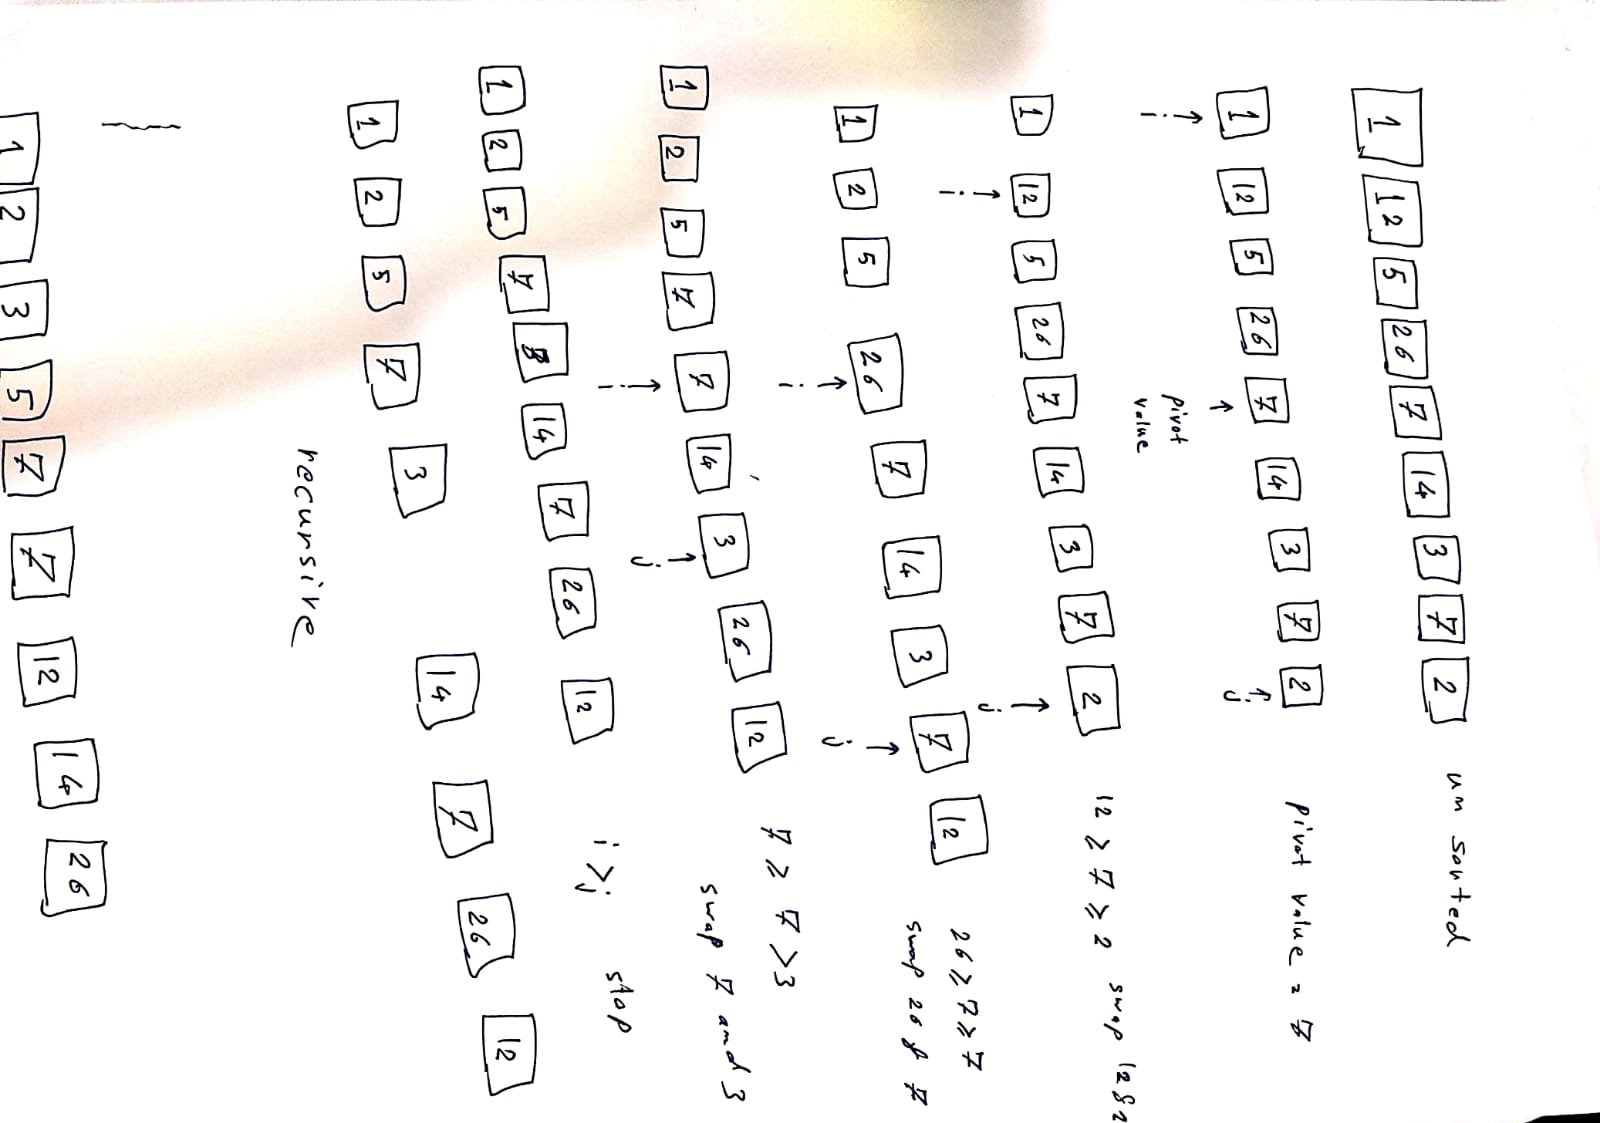 1 12 5 26 7 14 3 7 2 un sorted
1 12 5 26 7 14 3 7 2 pivot value = 7
i pivot value j
1 12 5 26 7 14 3 7 2 12 ≥ 7 ≥ 2 swap 12 & 2
i j
1 2 5 26 7 14 3 7 12 26 ≥ 7 ≥ 7
swap 26 & 7
i j
1 2 5 7 7 14 3 26 12 7 ≥ 7 > 3
swap 7 and 3
i j
1 2 5 7 3 14 7 26 12 i > j stop
1 2 5 7 3 14 7 26 12
recursive
1 2 3 5 7 7 12 14 26